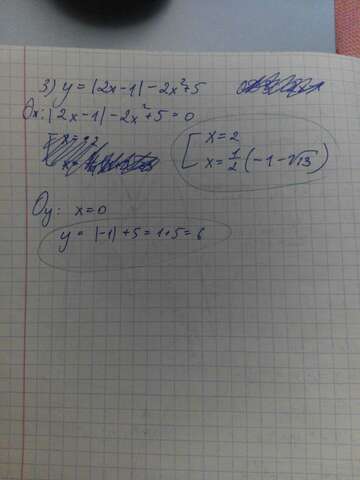 3) y = |2x-1| - 2x²+5
Ox: |2x-1| - 2x²+5 = 0
[ x = 2
x = 1/2 (-1-√13)
Oy: x=0
y = |-1| +5 = 1+5 = 6